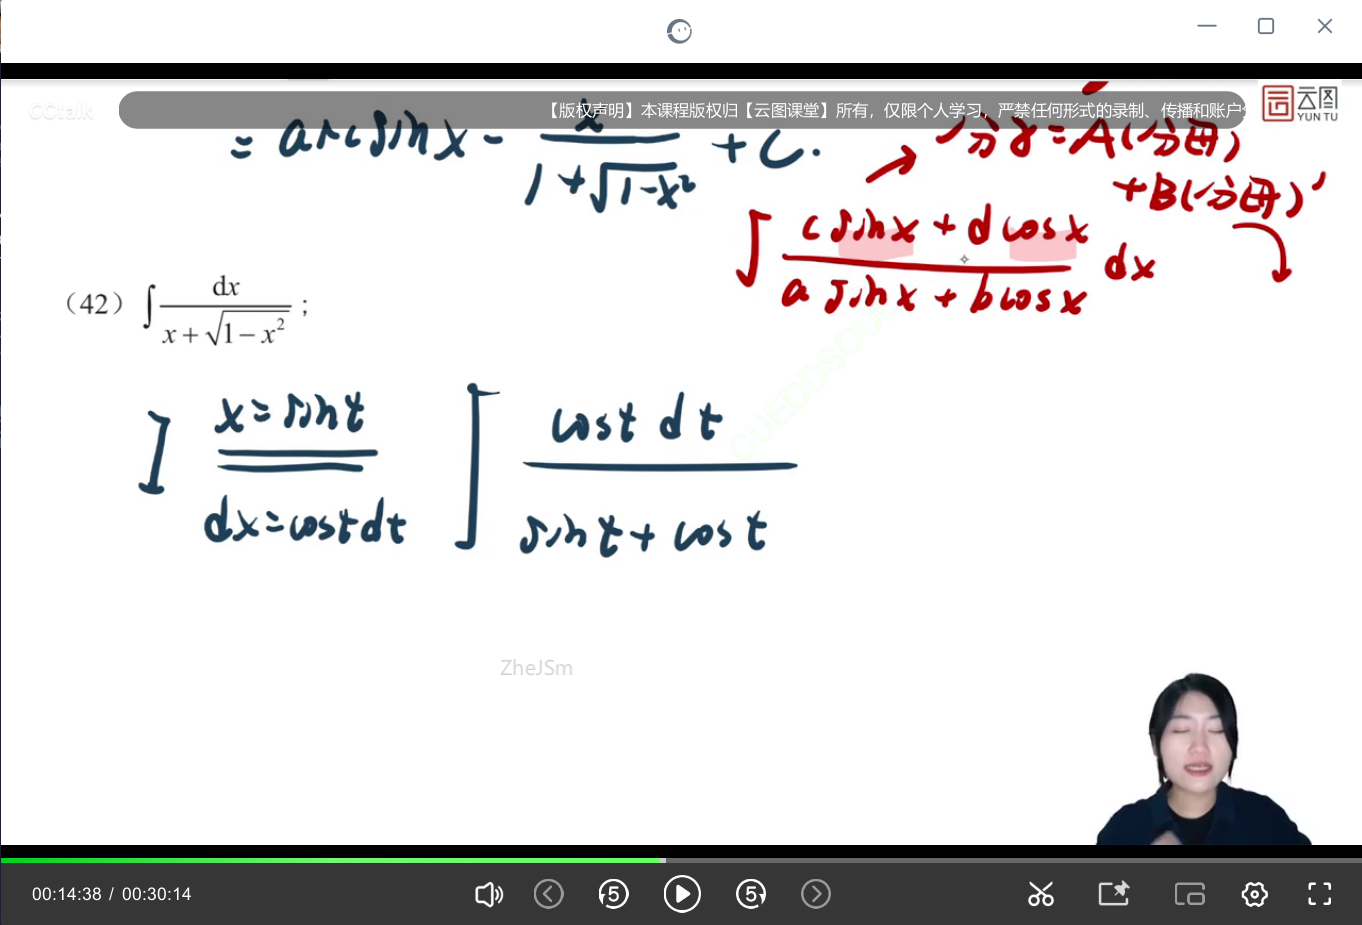 CCtalk
【版权声明】本课程版权归【云图课堂】所有，仅限个人学习，严禁任何形式的录制、传播和账户分
云图
YUN TU
= arcsinx - x/(1+√(1-x²)) + C.
分子=A(分母)
+B(分母)'
∫ (c sinx + d cosx)/(a sinx + b cosx) dx
（42）∫ dx/(x+√(1-x²)) ;
I x=sint ∫ cost dt/(sint + cost)
dx=costdt
ZheJSm
00:14:38 / 00:30:14
5
5